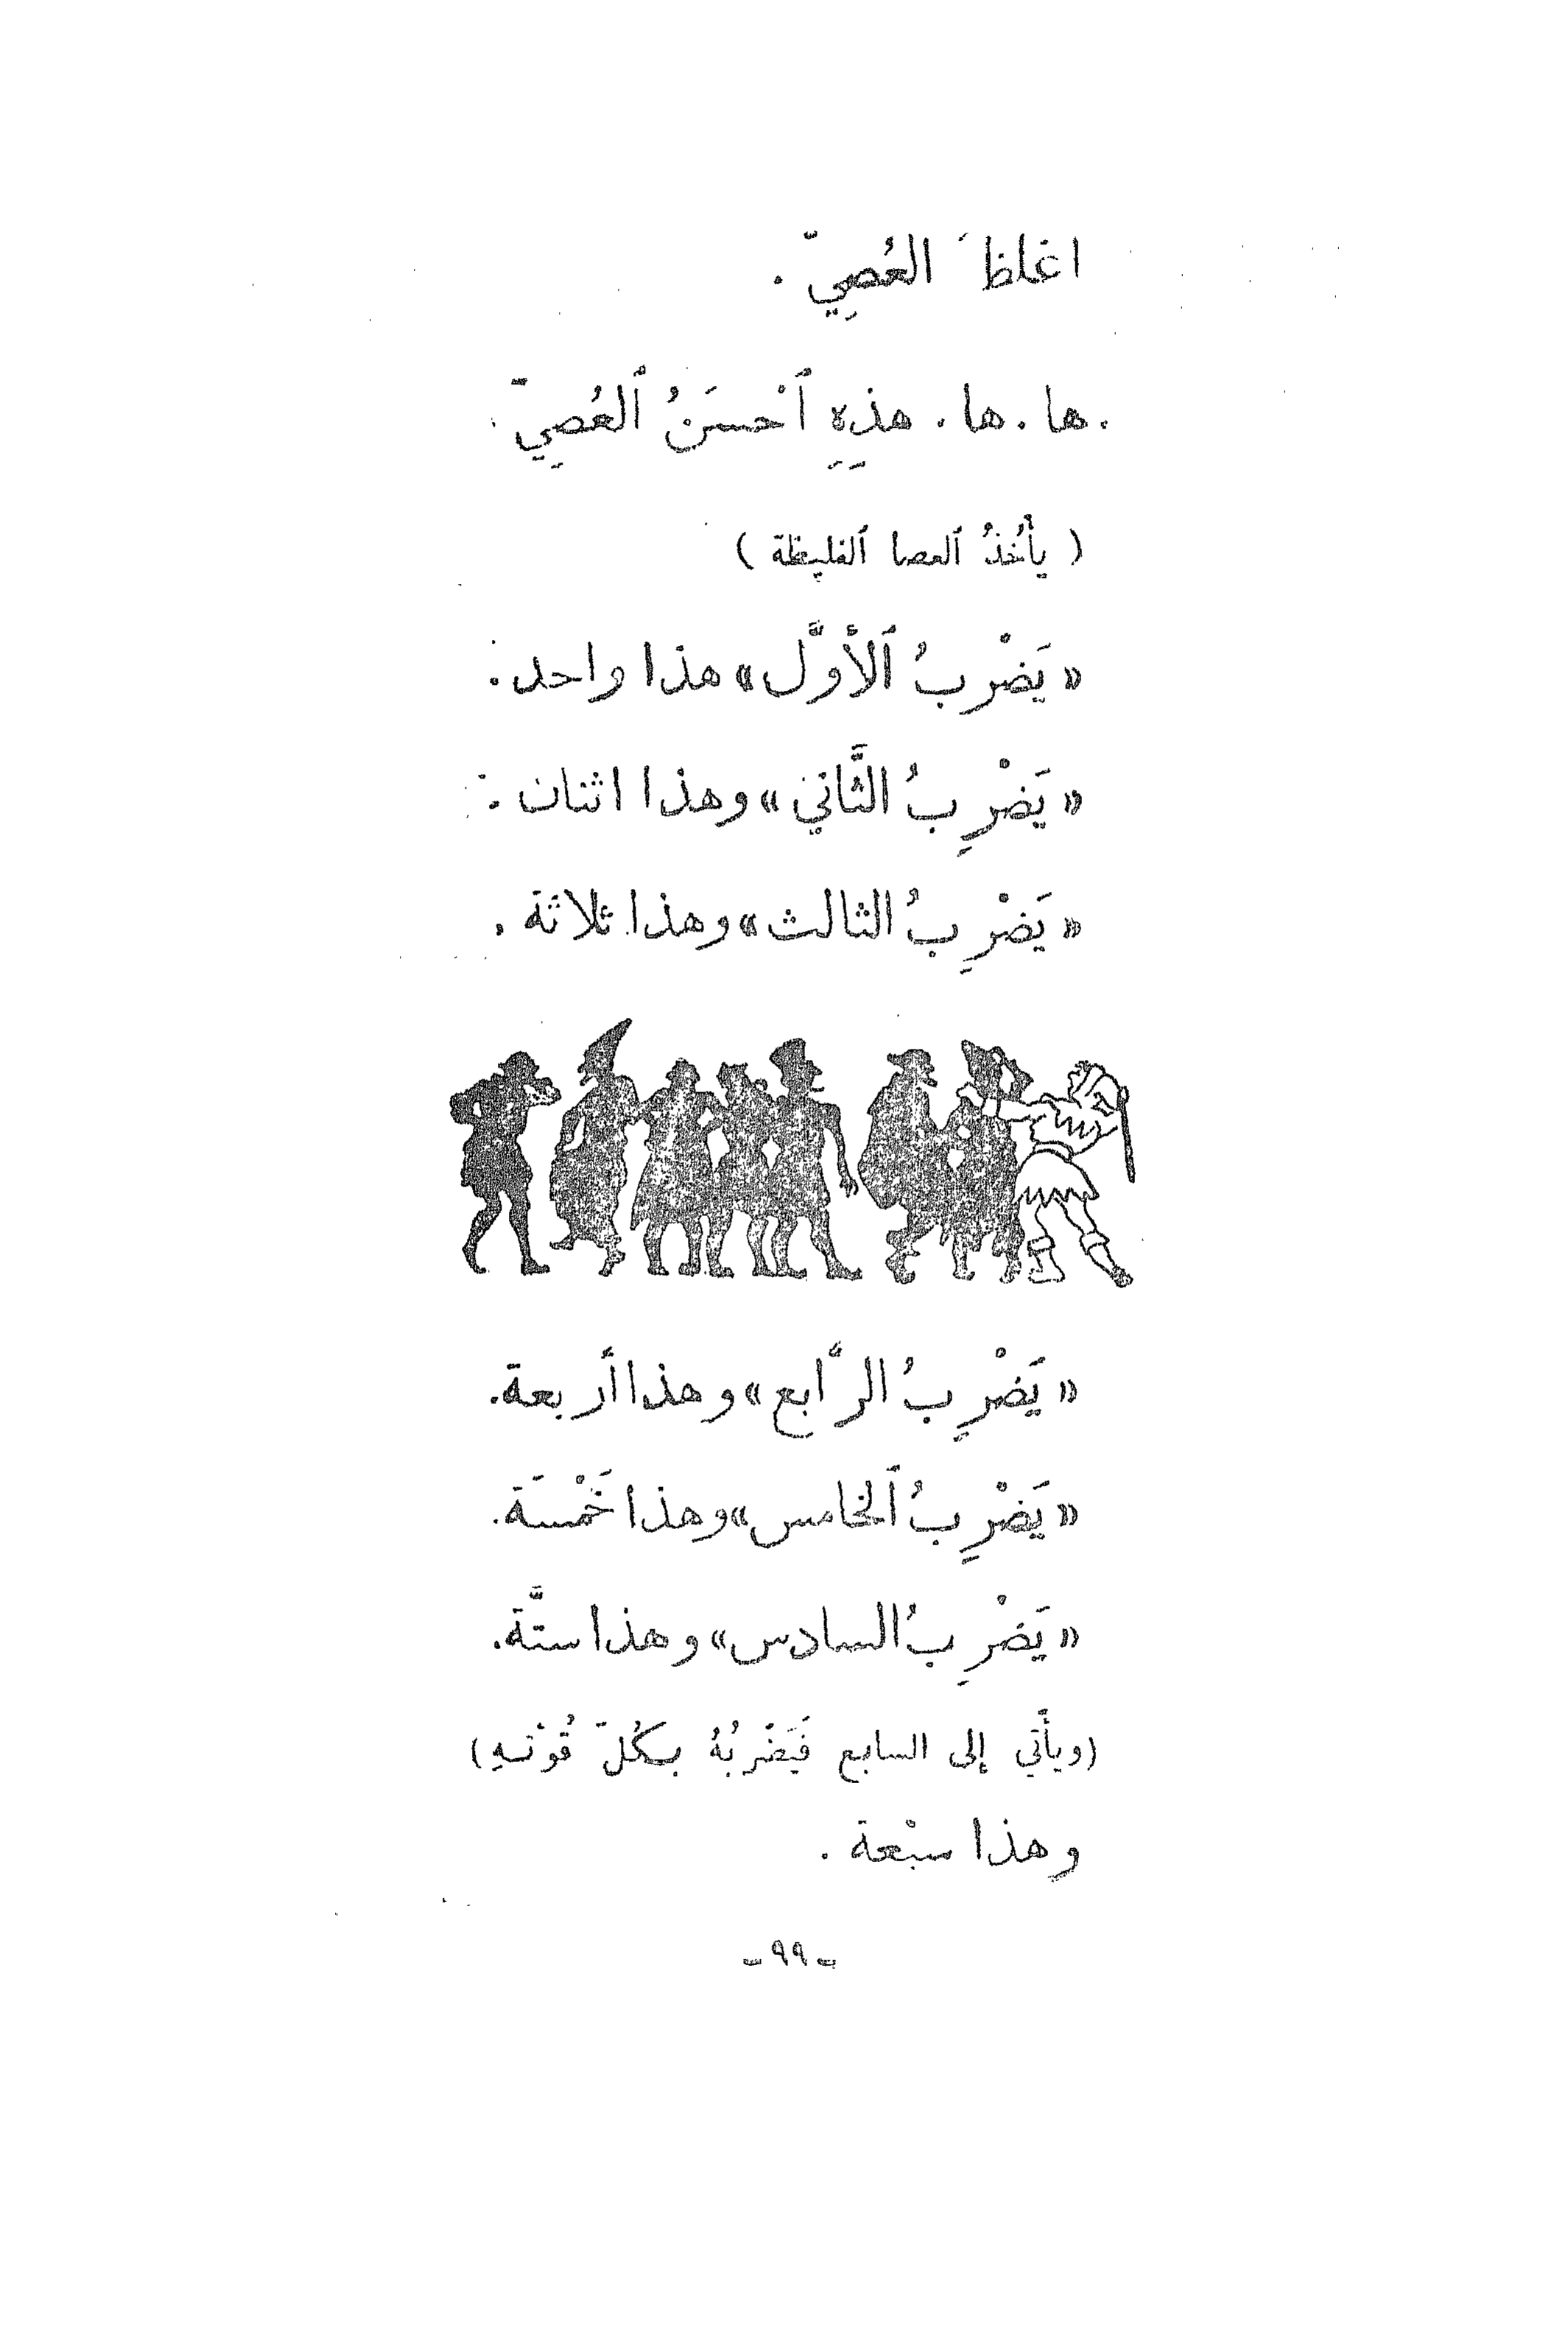 اغلظَ العُصِيّ .
. ها . ها . هذِهِ اَحْسَنُ اَلعُصِيّ .
( يأخُذُ اَلعصا اَلغليظة )
« يَضْربُ اَلأوَّل » هذا واحد .
« يَضْرِبُ الثَّاني » وهذا اثنان .
« يَضْرِبُ الثالث » وهذا ثلاثة .
« يَضْرِبُ الرَّابع » وهذا أربعة .
« يَضْرِبُ اَلخامس » وهذا خَمْسَة .
« يَضْرِبُ السادس » وهذا ستَّة .
(ويأتي إلى السابع فَيَضْربُهُ بكُلّ قُوّتهِ)
وهذا سبْعة .
- ٩٩ -